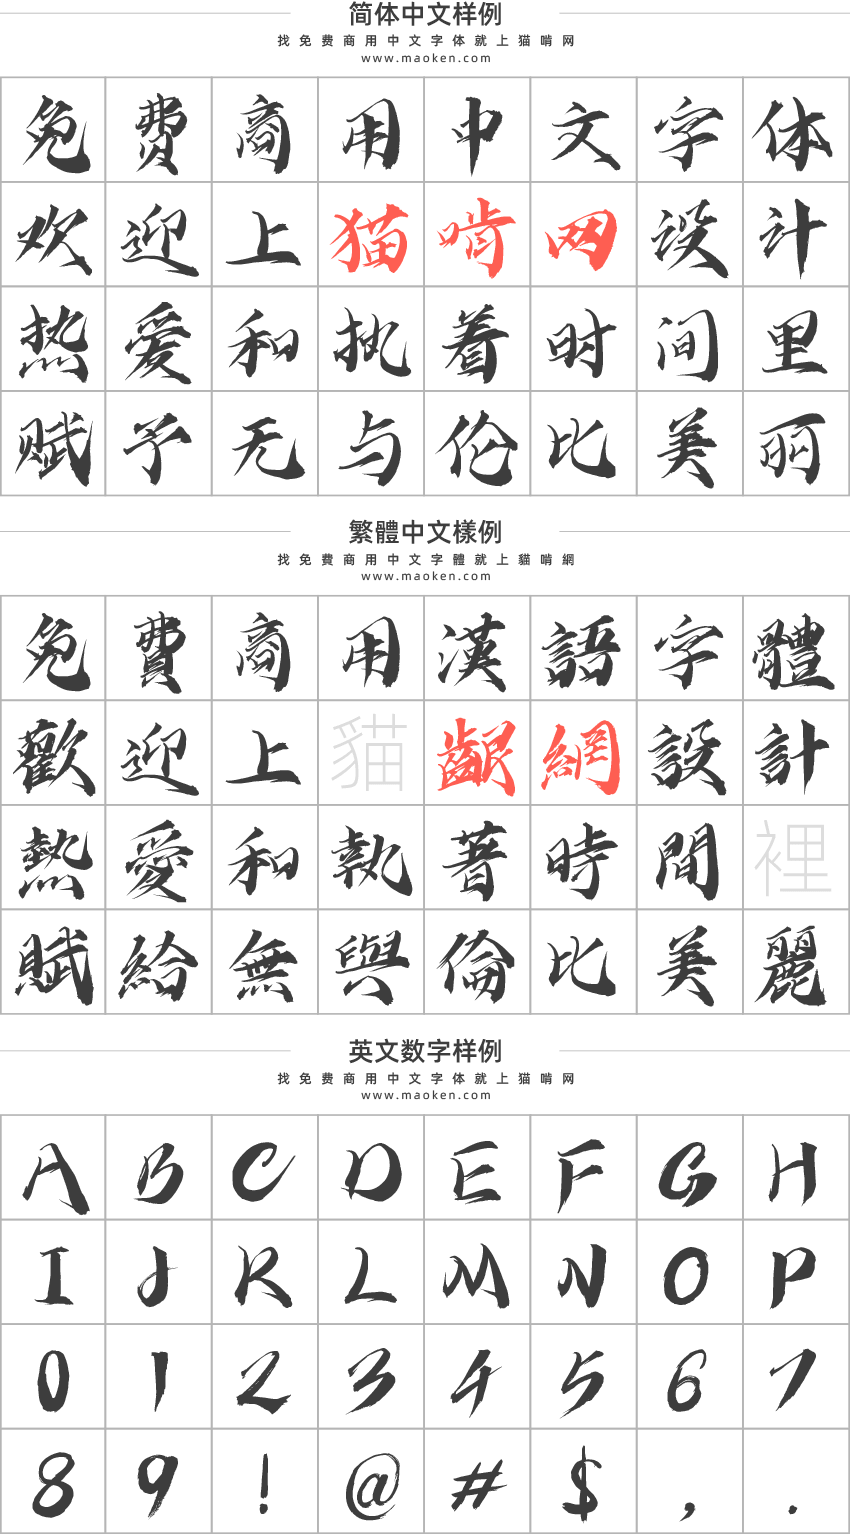 简体中文样例
找免费商用中文字体就上猫啃网
www.maoken.com
免费商用中文字体
欢迎上猫啃网设计
热爱和执着时间里
赋予无与伦比美丽
繁體中文樣例
找免費商用中文字體就上貓啃網
www.maoken.com
免費商用漢語字體
歡迎上貓齦網設計
熱愛和執著時間裡
賦給無與倫比美麗
英文数字样例
找免费商用中文字体就上猫啃网
www.maoken.com
A B C D E F G H
I J K L M N O P
0 1 2 3 4 5 6 7
8 9 ! @ # $ , .